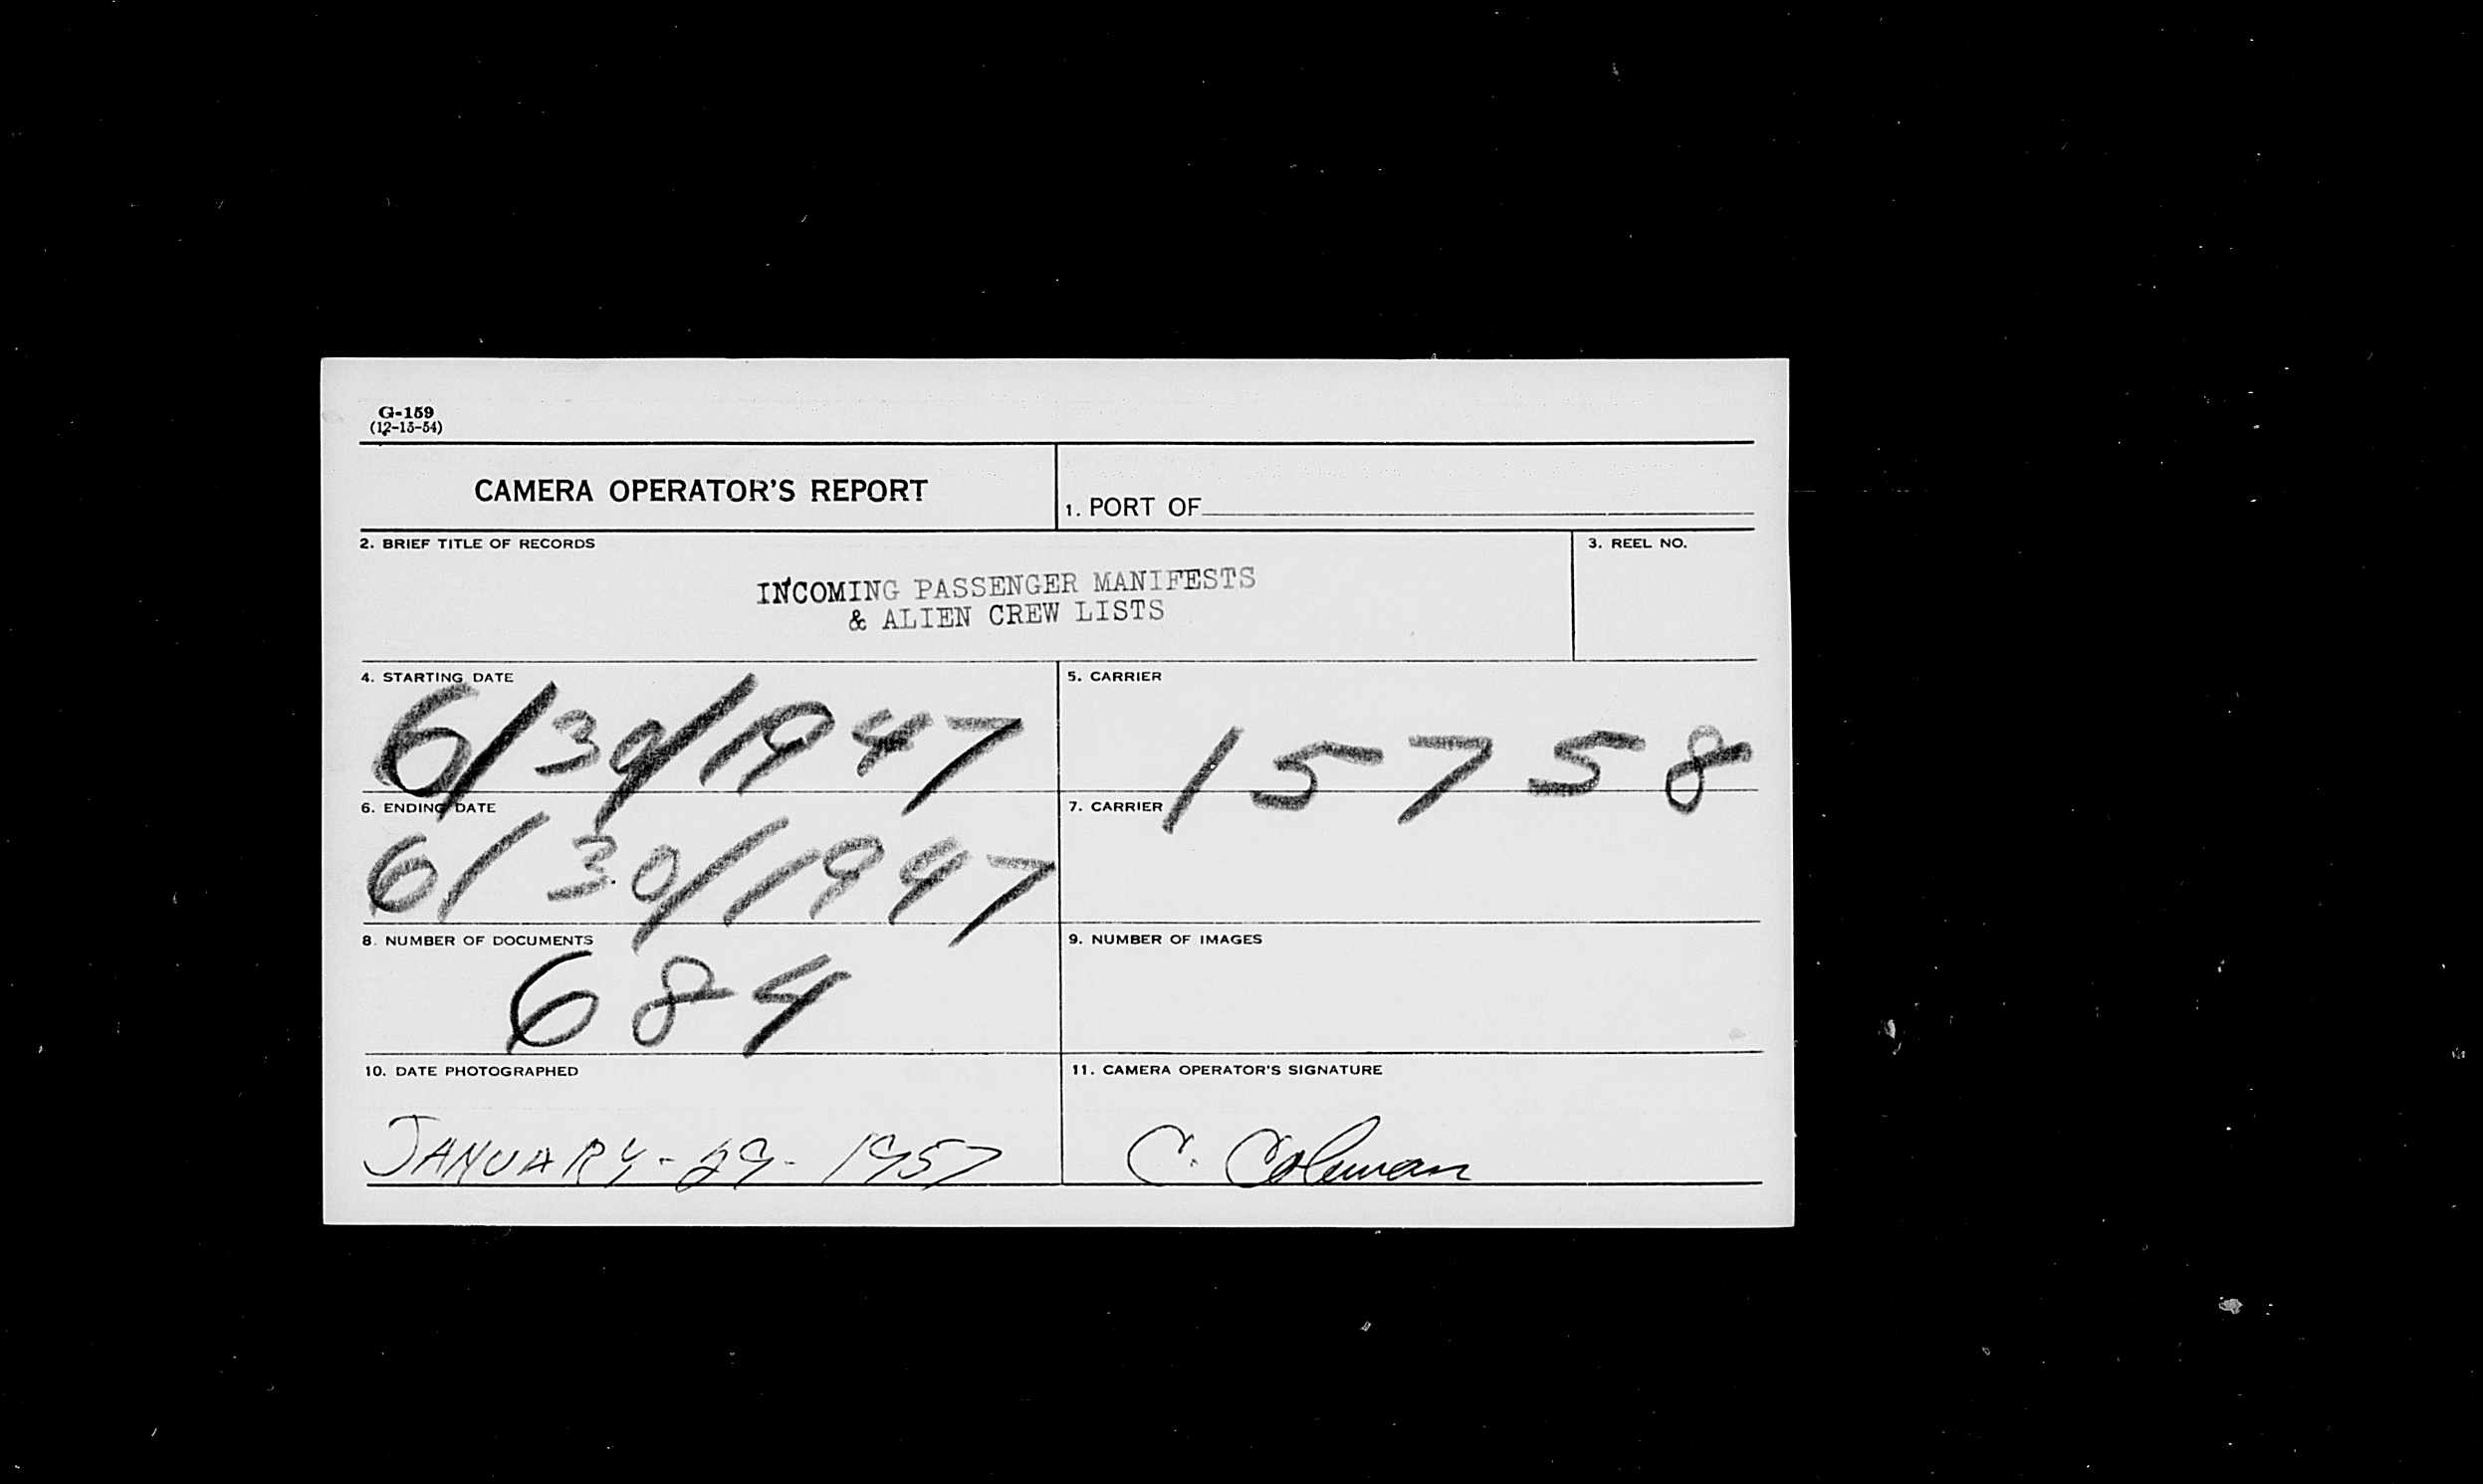 G-159
(12-15-54)
CAMERA OPERATOR'S REPORT
1. PORT OF
2. BRIEF TITLE OF RECORDS
3. REEL NO.
INCOMING PASSENGER MANIFESTS
& ALIEN CREW LISTS
4. STARTING DATE
6/30/1947
5. CARRIER
15758
6. ENDING DATE
6/30/1947
7. CARRIER
8. NUMBER OF DOCUMENTS
684
9. NUMBER OF IMAGES
10. DATE PHOTOGRAPHED
JANUARY-29-1957
11. CAMERA OPERATOR'S SIGNATURE
C. Coleman